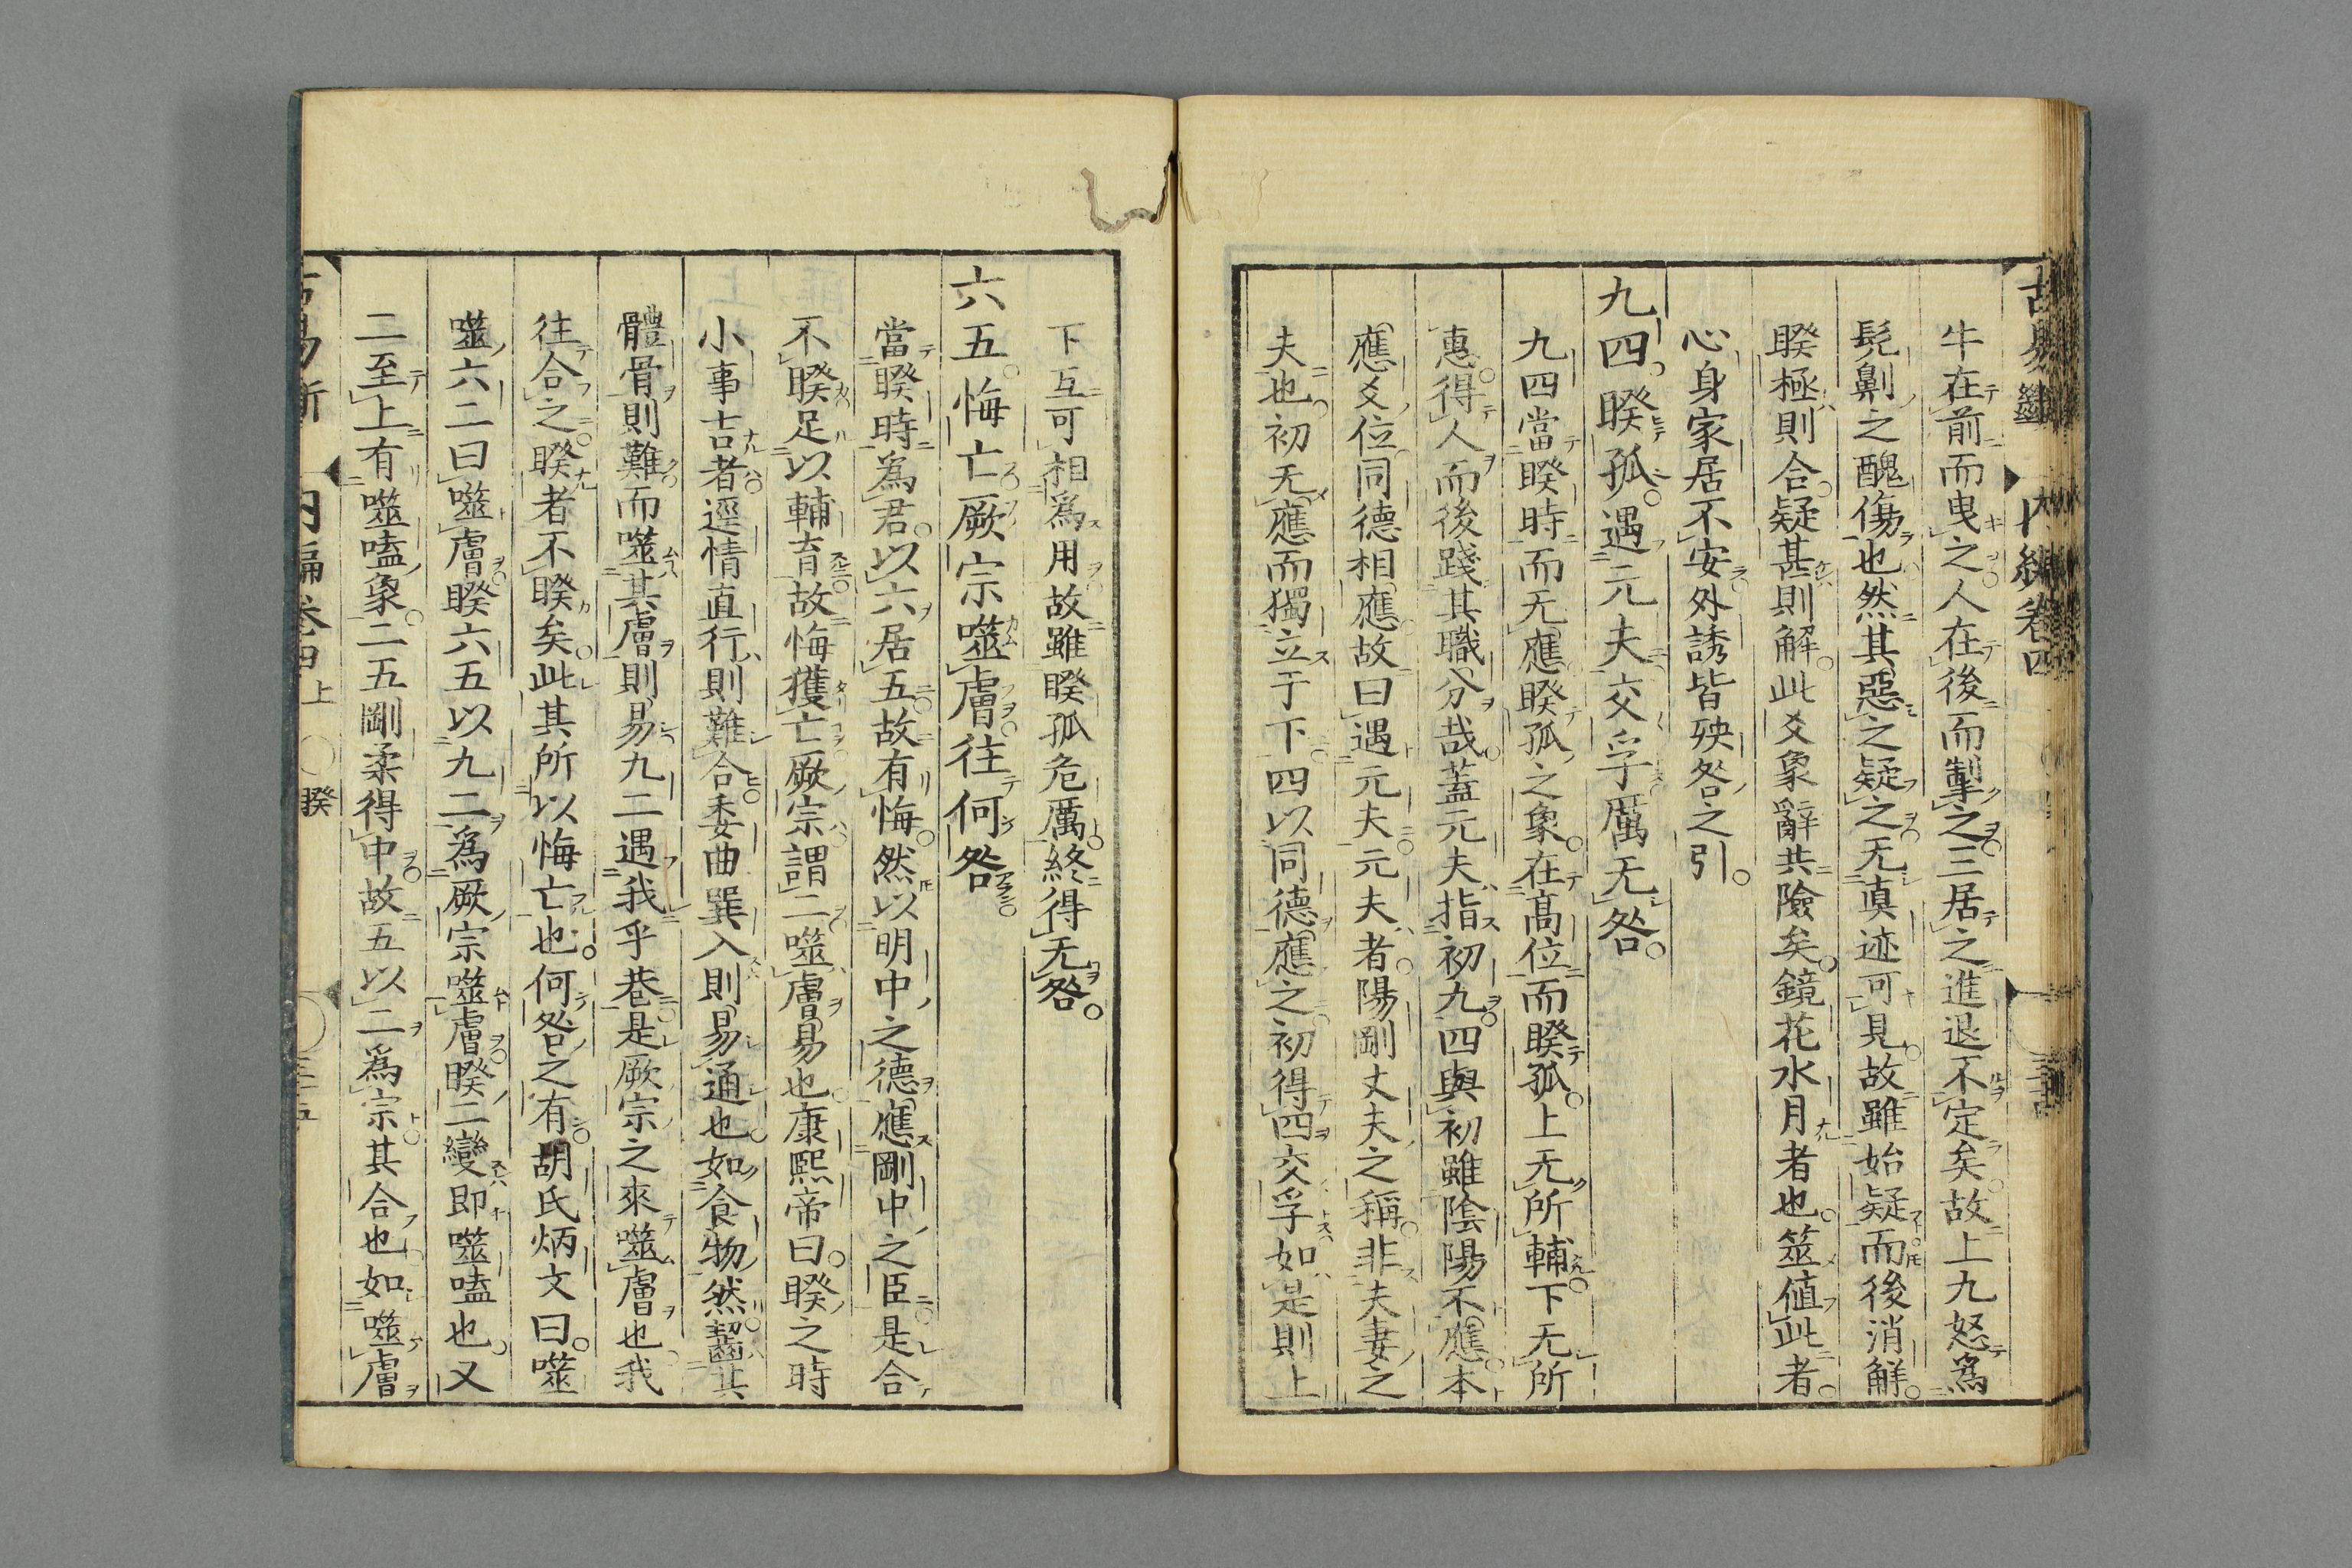 牛在前而曳之人在後而掣之三居之進退不定矣故上九怒爲
髡劓之醜傷也然其惡之疑之无眞迹可見故雖始疑而後消解
睽極則合疑甚則解此爻象辭共險矣鏡花水月者也筮値此者
心身家居不安外誘皆殃咎之引
九四睽孤遇元夫交孚厲无咎
九四當睽時而无應睽孤之象在高位而睽孤上无所輔下无所
惠得人而後踐其職分哉蓋元夫指初九四與初雖陰陽不應本
應爻位同德相應故曰遇元夫元夫者陽剛丈夫之稱非夫妻之
夫也初无應而獨立于下四以同德應之初得四交孚如是則上
下互可相爲用故雖睽孤危厲終得无咎
六五悔亡厥宗噬膚往何咎
當睽時爲君以六居五故有悔然以明中之德應剛中之臣是合
不睽足以輔育故悔獲亡厥宗謂二噬膚易也康熙帝曰睽之時
小事吉者逕情直行則難合委曲巽入則易通也如食物然齧其
體骨則難而噬其膚則易九二遇我乎巷是厥宗之來噬膚也我
往合之睽者不睽矣此其所以悔亡也何咎之有胡氏炳文曰噬
噬六二曰噬膚睽六五以九二爲厥宗噬膚睽二變即噬嗑也又
二至上有噬嗑象二五剛柔得中故五以二爲宗其合也如噬膚
內編卷四上 睽